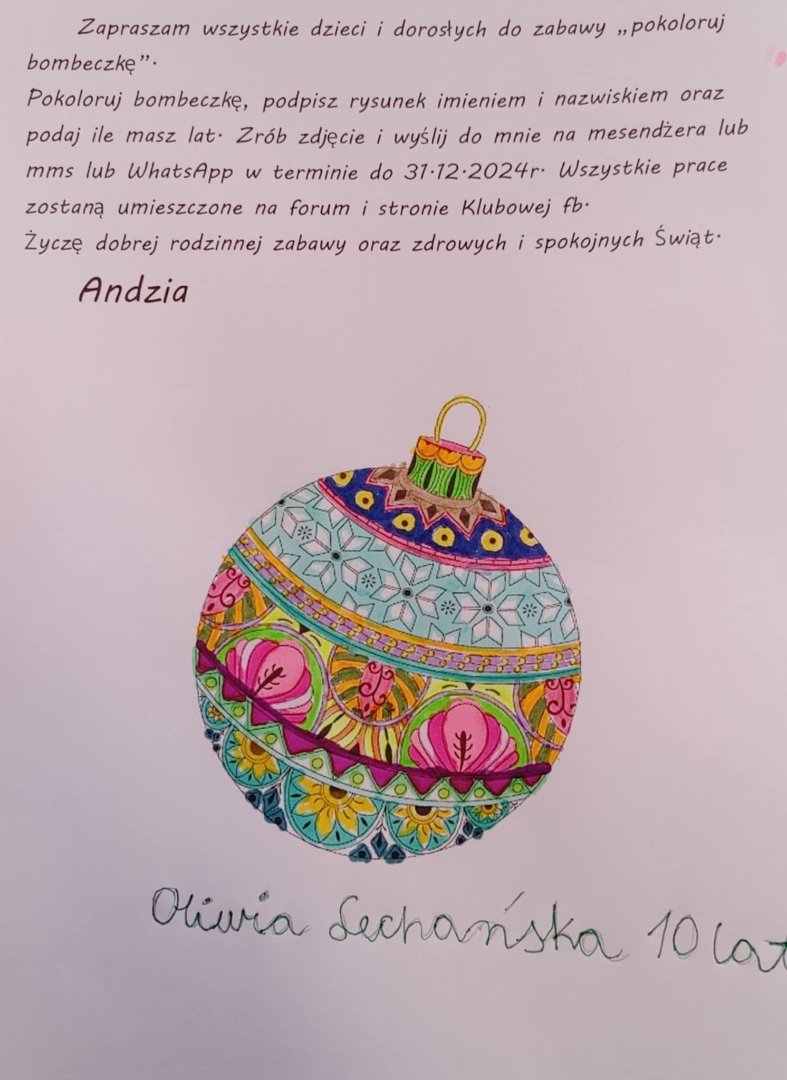 Zapraszam wszystkie dzieci i dorosłych do zabawy „pokoloruj
bombeczkę”.
Pokoloruj bombeczkę, podpisz rysunek imieniem i nazwiskiem oraz
podaj ile masz lat. Zrób zdjęcie i wyślij do mnie na mesendżera lub
mms lub WhatsApp w terminie do 31.12.2024r. Wszystkie prace
zostaną umieszczone na forum i stronie Klubowej fb.
Życzę dobrej rodzinnej zabawy oraz zdrowych i spokojnych Świąt.
Andzia
Oliwia Lechańska 10 lat